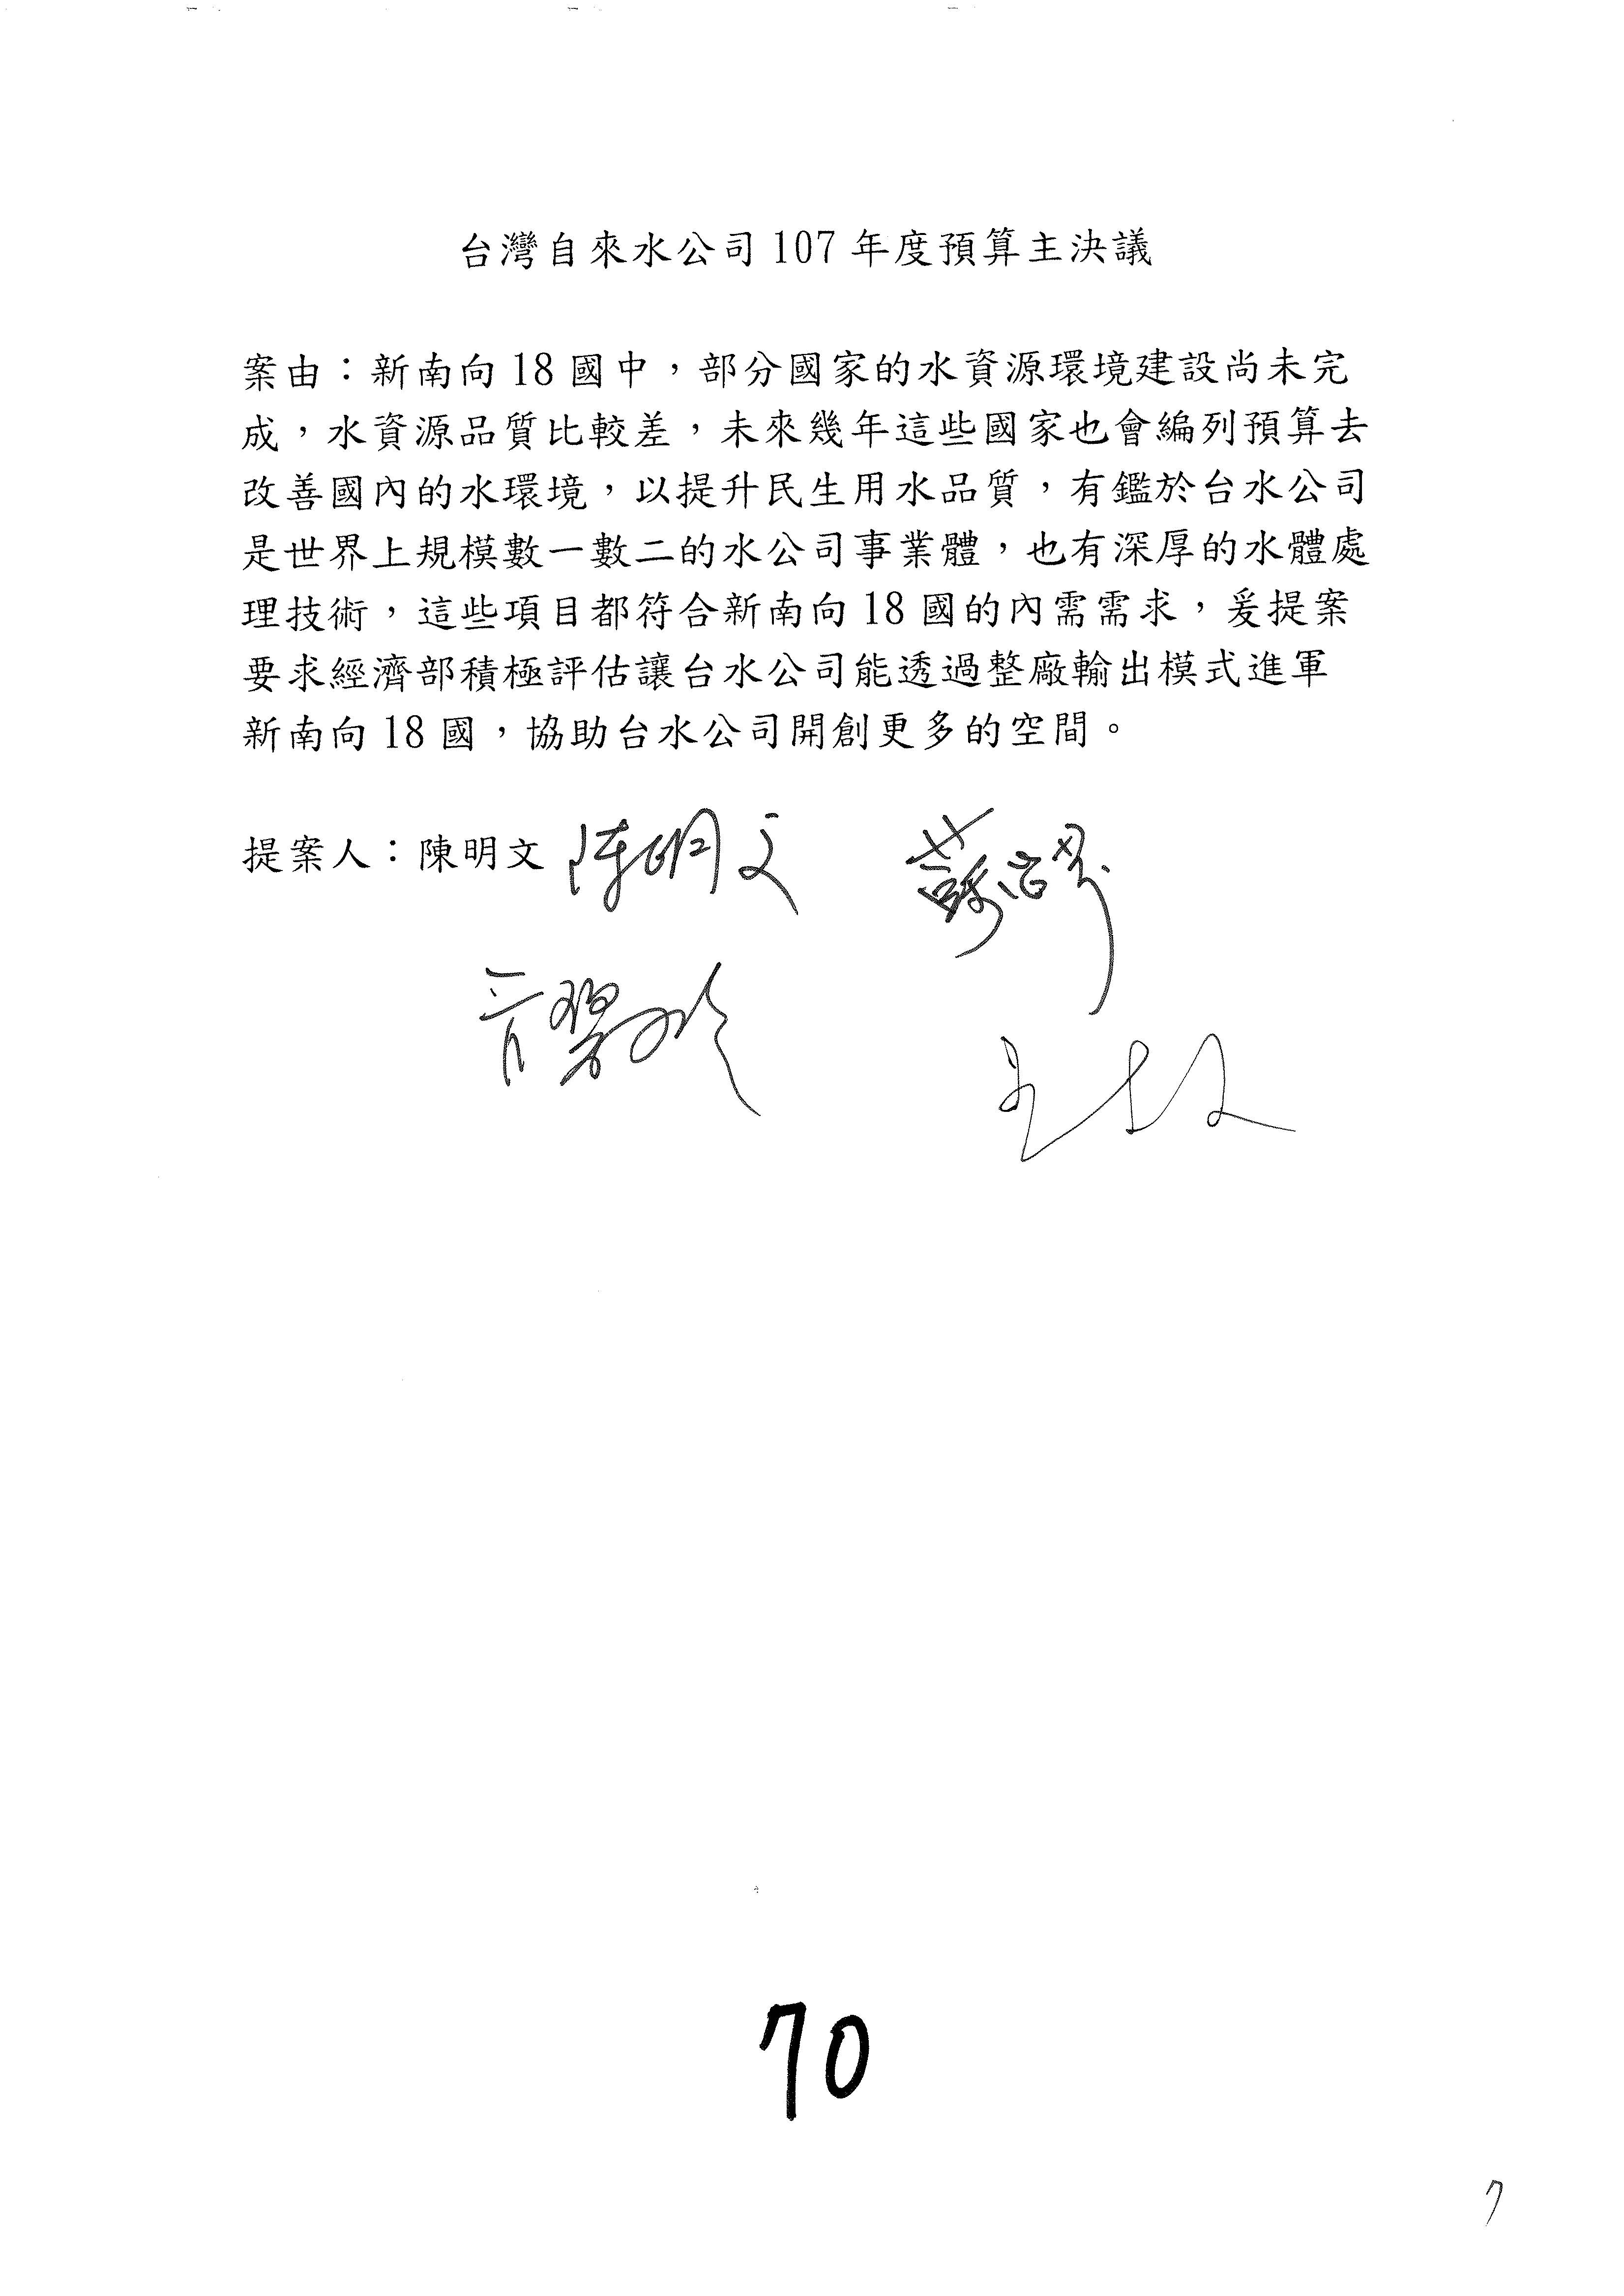 台灣自來水公司 107 年度預算主決議
案由：新南向 18 國中，部分國家的水資源環境建設尚未完
成，水資源品質比較差，未來幾年這些國家也會編列預算去
改善國內的水環境，以提升民生用水品質，有鑑於台水公司
是世界上規模數一數二的水公司事業體，也有深厚的水體處
理技術，這些項目都符合新南向 18 國的內需需求，爰提案
要求經濟部積極評估讓台水公司能透過整廠輸出模式進軍
新南向 18 國，協助台水公司開創更多的空間。
提案人：陳明文 陳明文 蘇治芬
管碧玲
70
7